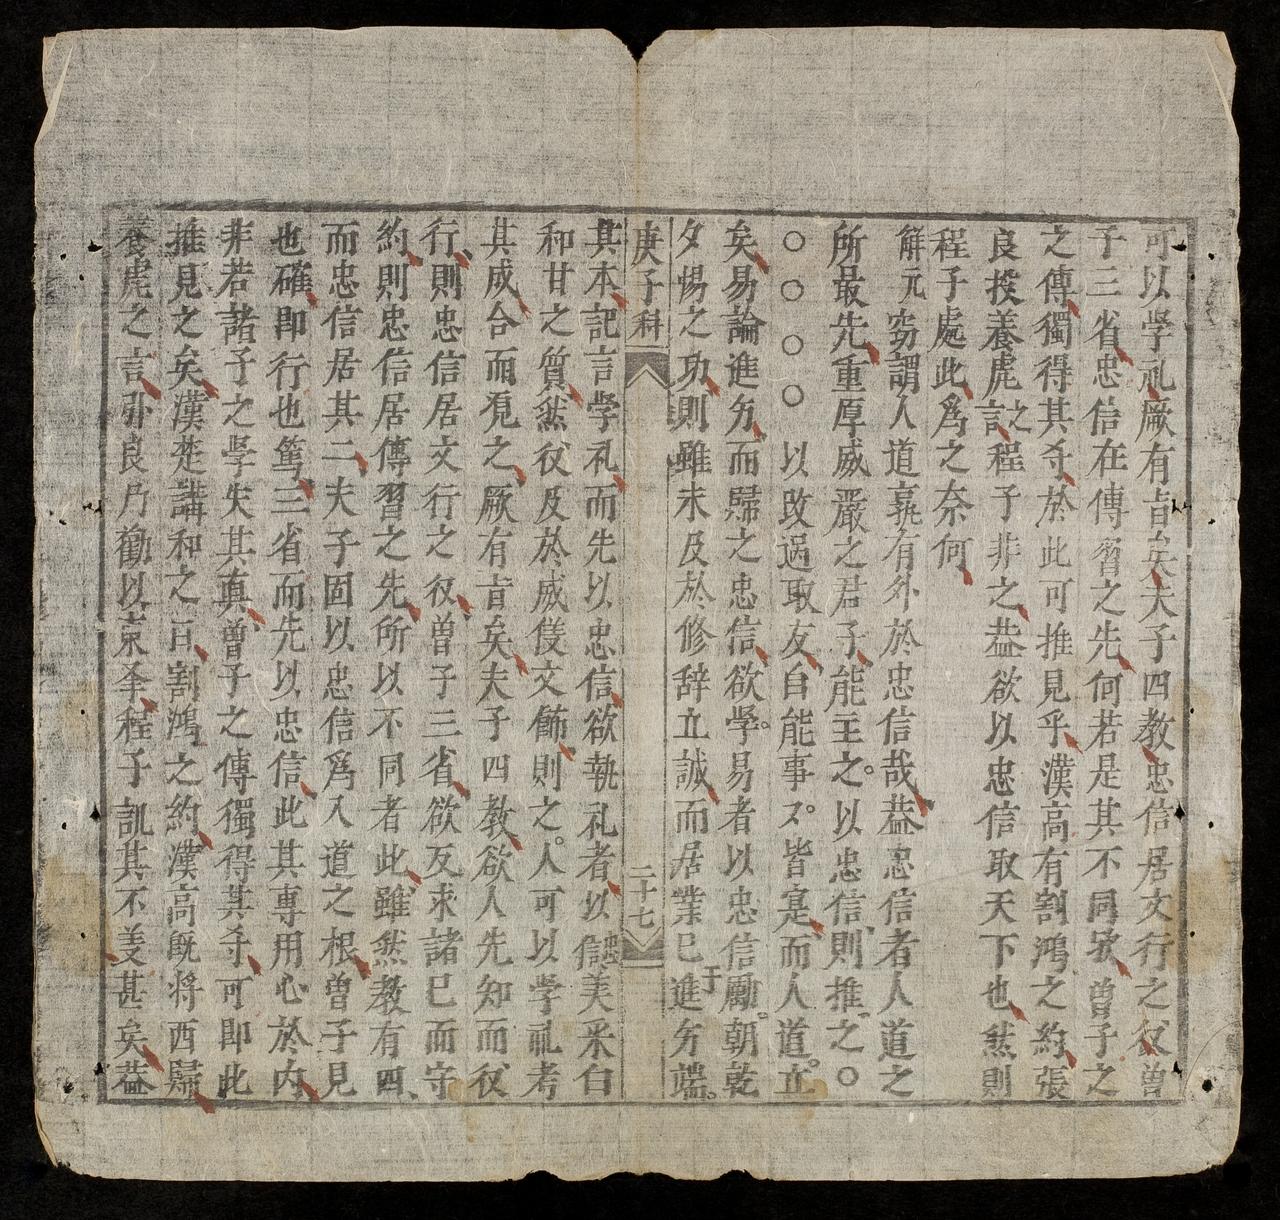 可以学礼厥有旨矣夫子四教忠信居文行之後曽
子三省忠信在傳習之先何若是其不同欤曽子之
之傳獨得其夲於此可推見乎漢高有割鴻之約張
良投養虎之言程子非之盖欲以忠信取天下也然則
程子處此為之奈何
解元窃謂人道孰有外於忠信哉盖忠信者人道之
所最先重厚威嚴之君子能主之以忠信則推之○
○○○○以改過取友自能事又皆寔而人道立
矣易論進务而歸之忠信欲学易者以忠信励于朝乾
夕惕之功則雖未及於修辞立誠而居業已進务端
庚子科 二十七
其本記言学礼而先以忠信欲執礼者以忠信美采白
和甘之質然後及於威儀文飾則之人可以学礼考
其成合而覌之厥有旨矣夫子四教欲人先知而後
行則忠信居文行之後曽子三省欲反求諸已而守
約則忠信居傳習之先所以不同者此雖然教有四
而忠信居其二夫子固以忠信為入道之根曽子見
也確即行也篤三省而先以忠信此其專用心於内
非若諸子之学失其真曽子之傳獨得其夲可即此
推見之矣漢楚講和之日割鴻之約漢高既将西歸
養虎之言張良乃勸以東夆程子訊其不義甚矣盖